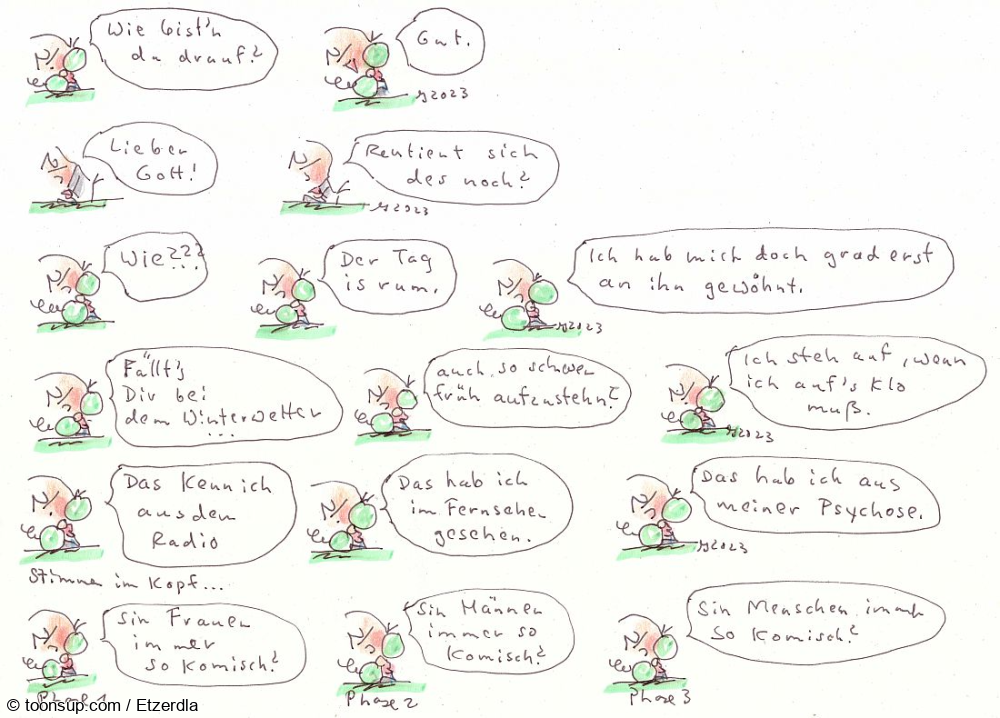 Wie bist'n
du drauf?
Gut.
2023
Lieber
Gott!
Rentiert sich
des noch?
2023
Wie???
Der Tag
is rum.
Ich hab mich doch grad erst
an ihn gewöhnt.
2023
Fällt's
Dir bei
dem Winterwetter
...
auch so schwer
früh aufzustehn?
Ich steh auf, wenn
ich auf's Klo
muß.
2023
Das kenn ich
aus dem
Radio
Das hab ich
im Fernsehen
gesehen.
Das hab ich aus
meiner Psychose.
2023
Stimmen im Kopf...
Sin Frauen
immer
so komisch?
Sin Männer
immer so
komisch?
Sin Menschen immer
so komisch?
Phase 1
Phase 2
Phase 3
© toonsup.com / Etzerdla